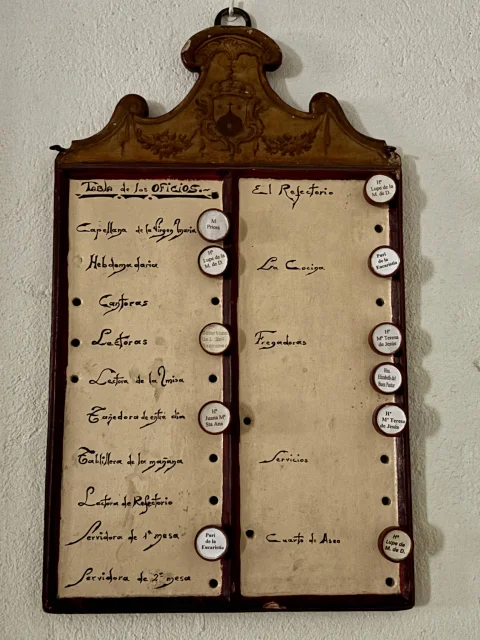 TABLA de los OFICIOS.~
Capellana de la Virgen María
M
Priora
Hebdomadaria
Hª
Lupe de la
M. de D.
Cantoras
Lectoras
Lectora de la Misa
Tañedora de entre dia
Hª
Juana Mª
Sta Ana
Tablillera de la mañana
Lectora de Refectorio
Servidora de 1ª mesa
Puri
de la
Eucaristía
Servidora de 2ª mesa
El Refectorio
Hª
Lupe de la
M. de D.
La Cocina
Puri de
la
Eucaristía
Fregadoras
Hª
Mª Teresa
de Jesús
Hna.
Elizabeth del
Buen Pastor
Hª
Mª Teresa
de Jesús
Servicios
Cuarto de Aseo
Hª
Lupe de
M. de D.